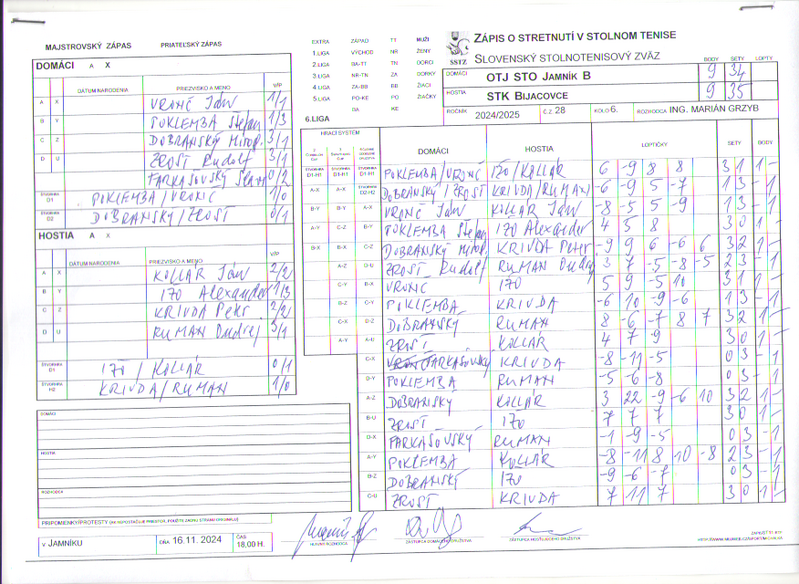 MAJSTROVSKÝ ZÁPAS PRIATEĽSKÝ ZÁPAS
EXTRA ZÁPAD TT MUŽI
1.LIGA VÝCHOD NR ŽENY
2.LIGA BA-TT TN DORCI
3.LIGA NR-TN ZA DORKY
4.LIGA ZA-BB BB ŽIACI
5.LIGA PO-KE PO ŽIAČKY
BA KE
6.LIGA
SSTZ
ZÁPIS O STRETNUTÍ V STOLNOM TENISE
SLOVENSKÝ STOLNOTENISOVÝ ZVÄZ
BODY SETY LOPTY
DOMÁCI OTJ STO JAMNÍK B 9 34
HOSTIA STK BIJACOVCE 9 35
ROČNÍK 2024/2025 Č.Z. 28 KOLO 6. ROZHODCA ING. MARIÁN GRZYB
DOMÁCI A X
DÁTUM NARODENIA PRIEZVISKO A MENO V/P
A X VRONČ Ján 1/1
B Y POKLEMBA Štefan 1/3
C Z DOBRANSKÝ Mirosl. 3/1
D U ZROST Rudolf 3/1
FARKAŠOVSKÝ 0/2
ŠTVORHRA D1 POKLEMBA/VRONČ 1/0
ŠTVORHRA D2 DOBRANSKÝ/ZROST 0/1
HOSTIA A X
DÁTUM NARODENIA PRIEZVISKO A MENO V/P
A X KOLLÁR Ján 2/2
B Y IŽO Alexander 1/3
C Z KRIVDA Petr 2/2
D U RUMAN Ondrej 3/1
ŠTVORHRA IŽO / KOLLÁR 0/1
ŠTVORHRA H2 KRIVDA/RUMAN 1/0
HRACÍ SYSTÉM DOMÁCI HOSTIA LOPTIČKY SETY BODY
POKLEMBA/VRONČ IŽO/KOLLÁR 6 -9 8 8 3 1 1 -
DOBRANSKÝ/ZROST KRIVDA/RUMAN -6 -9 5 -7 1 3 - 1
A-X A-X B-Y VRONČ Ján KOLLÁR Ján -8 -5 5 -9 1 3 - 1
POKLEMBA Štefan IŽO Alexander 4 5 8 3 0 1 -
DOBRANSKÝ Mirosl. KRIVDA Petr -9 9 6 -6 6 3 2 1 -
ZROST Rudolf RUMAN Ondrej 3 7 -5 -8 -5 2 3 - 1
VRONČ IŽO 5 9 -5 10 3 1 1 -
POKLEMBA KRIVDA -6 10 -9 -6 1 3 - 1
DOBRANSKÝ RUMAN 8 -6 -7 8 7 3 2 1 -
ZROST KOLLÁR 4 7 9 3 0 1 -
FARKAŠOVSKÝ KRIVDA -8 -11 -5 0 3 - 1
POKLEMBA RUMAN -5 -6 -8 0 3 - 1
DOBRANSKÝ KOLLÁR 3 22 -9 -6 10 3 2 1 -
ZROST IŽO 7 7 7 3 0 1 -
FARKAŠOVSKÝ RUMAN -1 -9 -5 0 3 - 1
POKLEMBA KOLLÁR -8 -11 8 10 -8 2 3 - 1
DOBRANSKÝ IŽO -9 -6 -7 0 3 - 1
ZROST KRIVDA 7 11 7 3 0 1 -
DOMÁCI
HOSTIA
ROZHODCA
V JAMNÍKU DŇA 16.11.2024 ČAS 18.00 H.
HLAVNÝ ROZHODCA